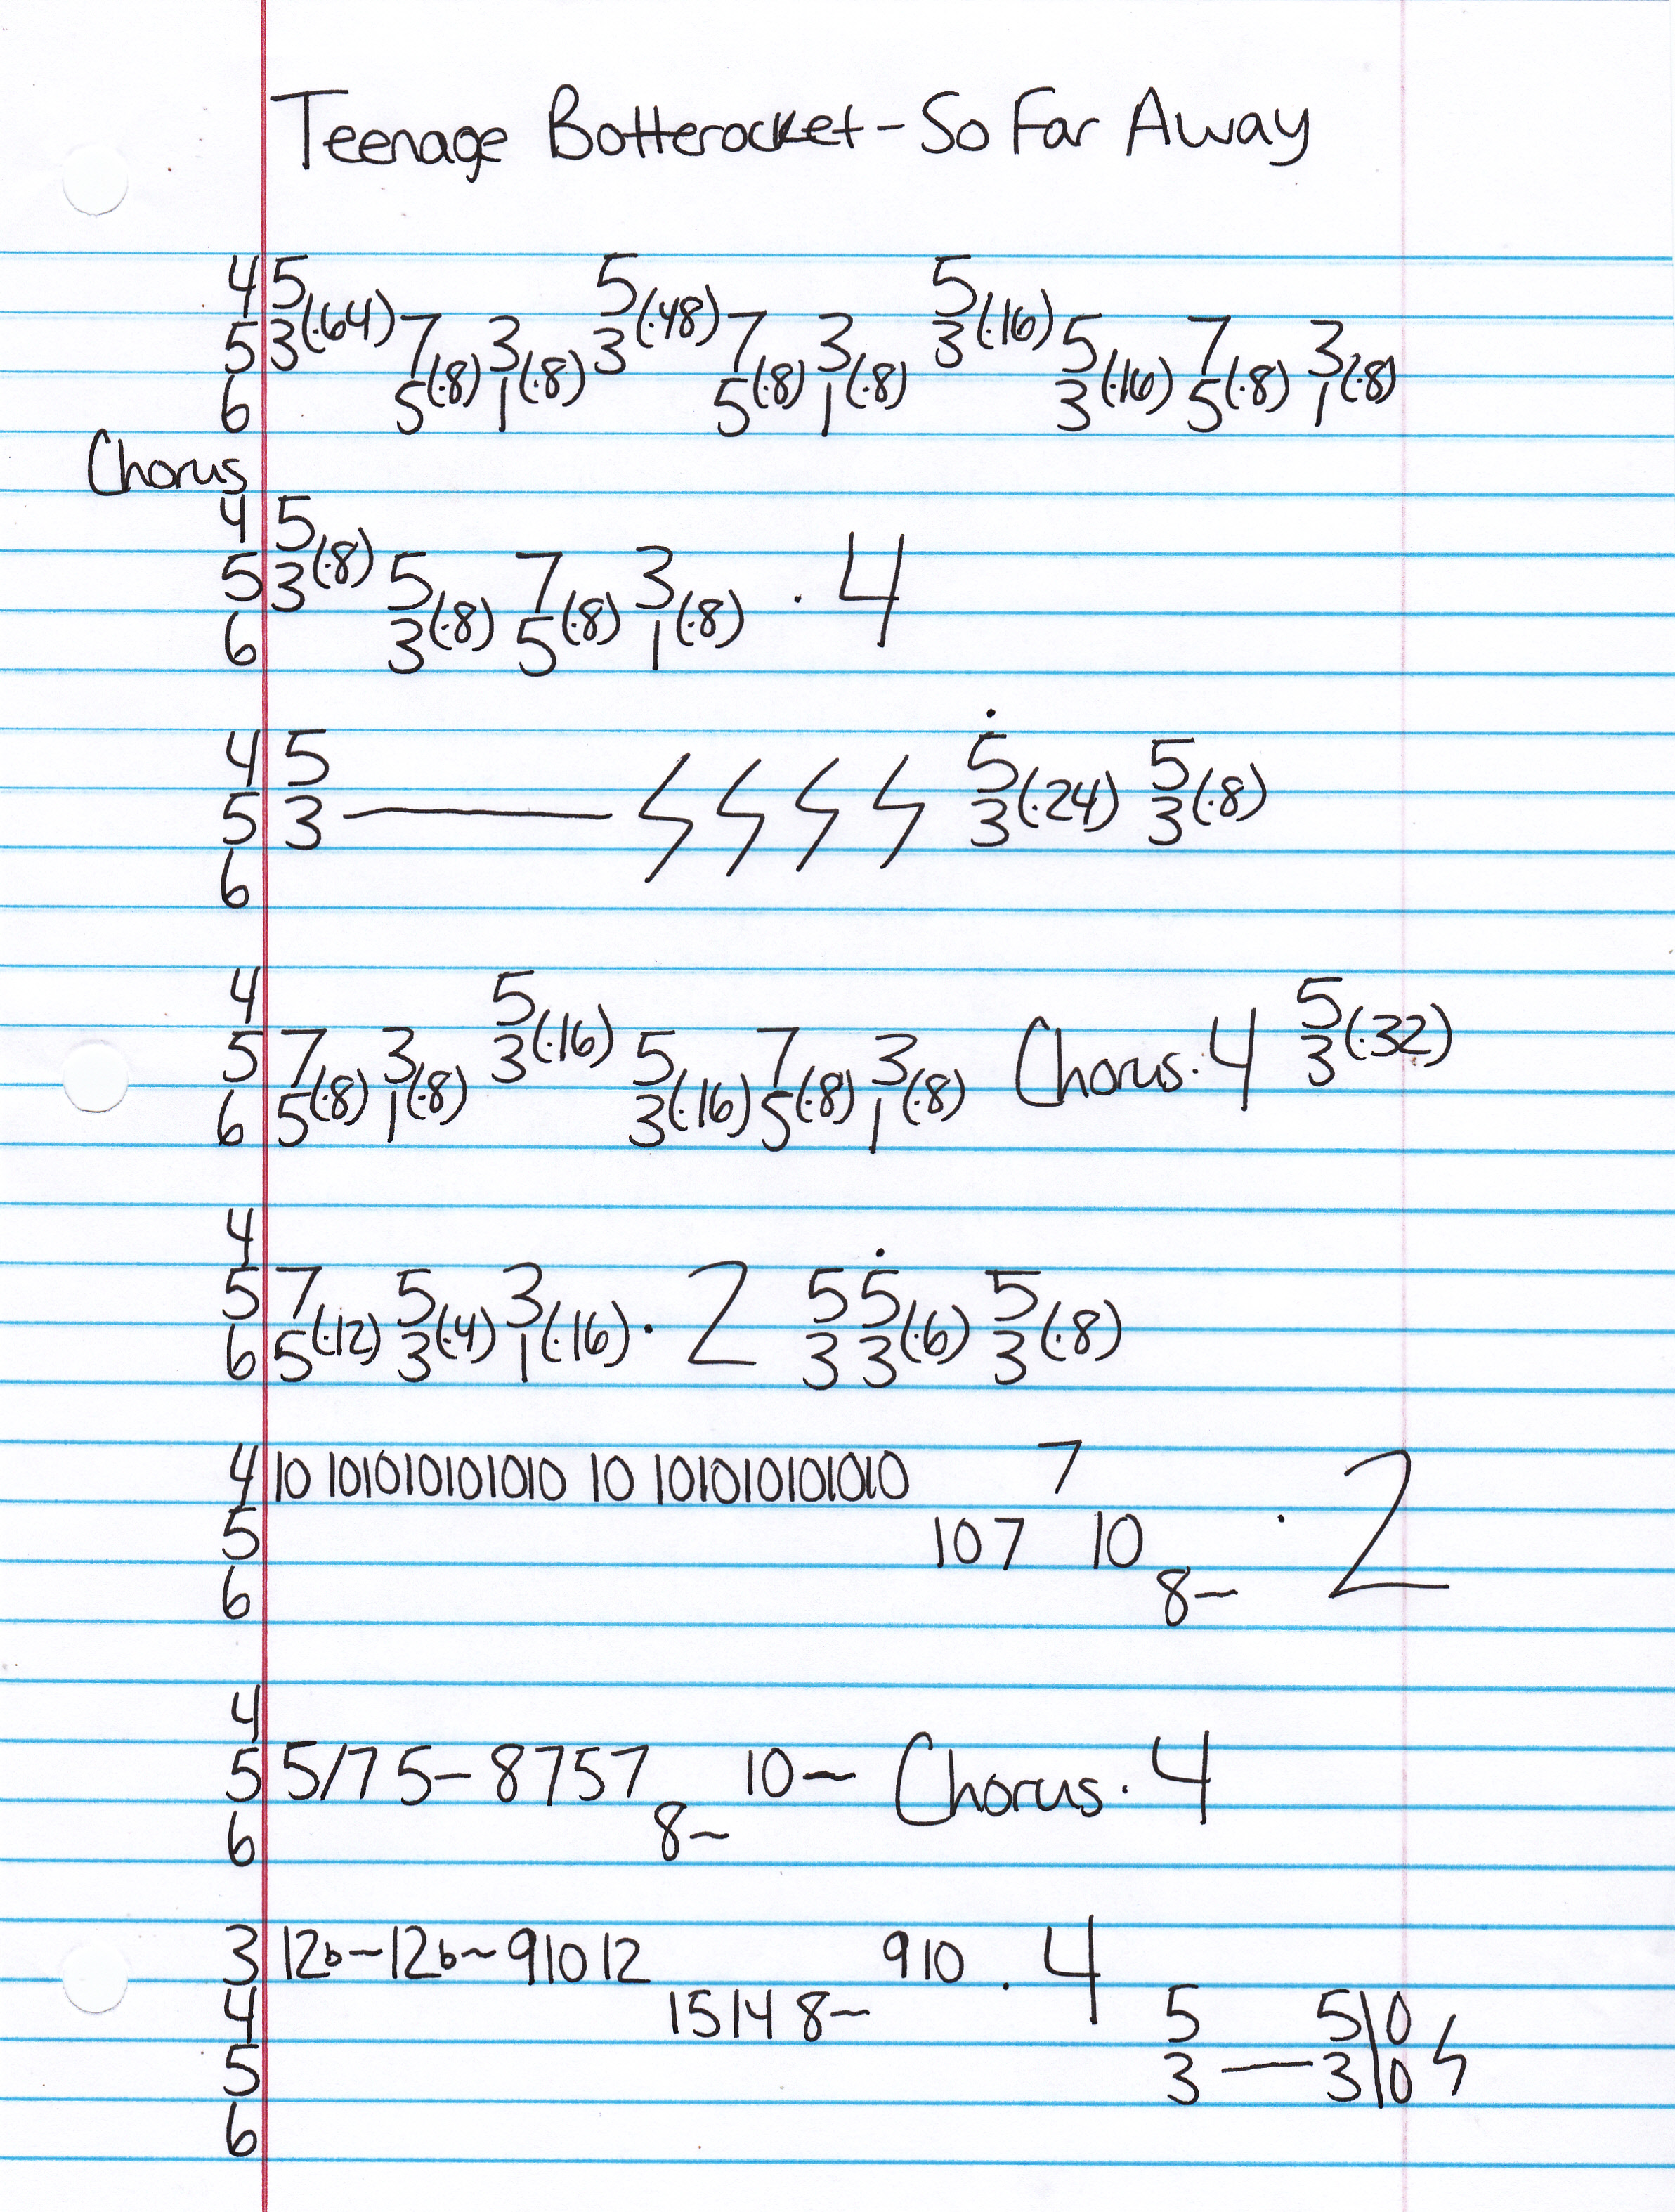 Teenage Bottlerocket - So Far Away
4 5 5 5
5 3(·64) 7 3 3(·48) 7 3 3(·16) 5 7 3
6 5(·8) 1(·8) 5(·8) 1(·8) 3(·16) 5(·8) 1(·8)
Chorus
4 5
5 3(·8) 5 7 3 · 4
6 3(·8) 5(·8) 1(·8)
4 5 5 5
5 3 — 3(·24) 3(·8)
6
4 5 5
5 7 3 3(·16) 5 7 3 Chorus · 4 3(·32)
6 5(·8) 1(·8) 3(·16) 5(·8) 1(·8)
4
5 7 5 3 · 2 5 5 5
6 5(·12) 3(·4) 1(·16) 3 3(·6) 3(·8)
4 10 101010101010 10 101010101010 7
5 10 7 10 · 2
6 8~
4
5 5/7 5- 8757 10~ Chorus · 4
6 8~
3 12b~12b~91012 910 · 4
4 15148~ 5 5\0
5 3 — 3\0
6